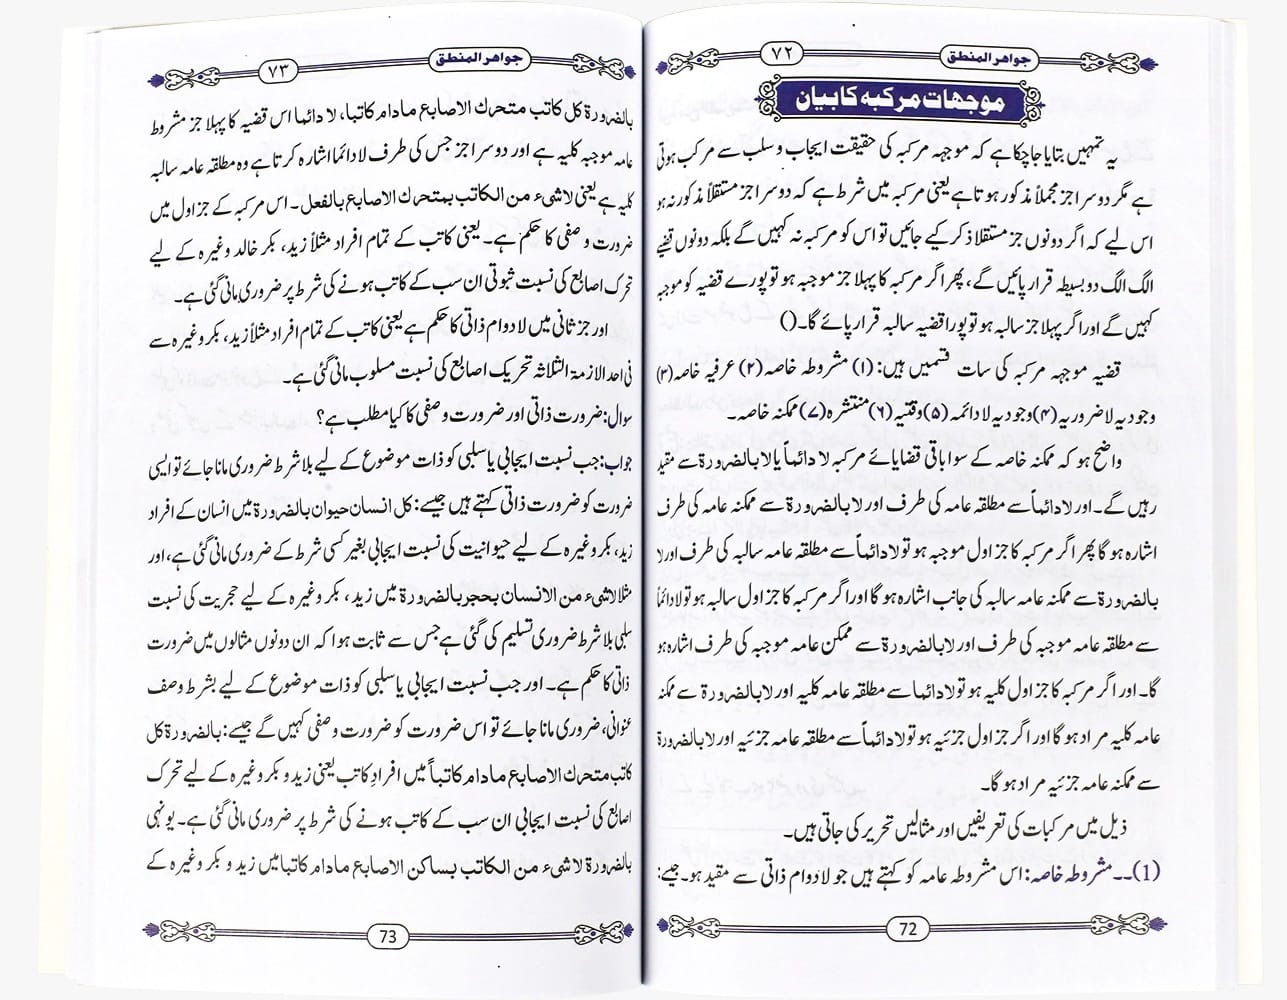 جواہر المنطق
۷۲
موجہات مرکبہ کا بیان
یہ تمہیں بتایا جاچکا ہے کہ موجہہ مرکبہ کی حقیقت ایجاب و سلب سے مرکب ہوتی
ہے مگر دوسرا جز مجملاً مذکور ہوتا ہے یعنی مرکبہ میں شرط ہے کہ دوسرا جز مستقلاً مذکور نہ ہو
اس لیے کہ اگر دونوں جز مستقلا ذکر کیے جائیں تو اس کو مرکبہ نہ کہیں گے بلکہ دونوں قضیے
الگ الگ دو بسیطہ قرار پائیں گے، پھر اگر مرکبہ کا پہلا جز موجبہ ہو تو پورے قضیہ کو موجبہ
کہیں گے اور اگر پہلا جز سالبہ ہو تو پورا قضیہ سالبہ قرار پائے گا۔()
قضیہ موجہہ مرکبہ کی سات قسمیں ہیں: (۱) مشروطہ خاصہ (۲) عرفیہ خاصہ (۳)
وجودیہ لا ضروریہ (۴) وجودیہ لا دائمہ (۵) وقتیہ (۶) منتشرہ (۷) ممکنہ خاصہ۔
واضح ہو کہ ممکنہ خاصہ کے سوا باقی قضایائے مرکبہ لا دائماً یا لا بالضرورۃ سے مقید
رہیں گے۔ اور لا دائماً سے مطلقہ عامہ کی طرف اور لا بالضرورۃ سے ممکنہ عامہ کی طرف
اشارہ ہوگا پھر اگر مرکبہ کا جز اول موجبہ ہو تو لا دائماً سے مطلقہ عامہ سالبہ کی طرف اور لا
بالضرورۃ سے ممکنہ عامہ سالبہ کی جانب اشارہ ہوگا اور اگر مرکبہ کا جز اول سالبہ ہو تو لا دائماً
سے مطلقہ عامہ موجبہ کی طرف اور لا بالضرورۃ سے ممکن عامہ موجبہ کی طرف اشارہ ہو
گا۔ اور اگر مرکبہ کا جز اول کلیہ ہو تو لا دائما سے مطلقہ عامہ کلیہ اور لا بالضرورۃ سے ممکنہ
عامہ کلیہ مراد ہوگا اور اگر جز اول جزئیہ ہو تو لا دائماً سے مطلقہ عامہ جزئیہ اور لا بالضرورۃ
سے ممکنہ عامہ جزئیہ مراد ہوگا۔
ذیل میں مرکبات کی تعریفیں اور مثالیں تحریر کی جاتی ہیں۔
(1)۔۔مشروطہ خاصہ: اس مشروطہ عامہ کو کہتے ہیں جو لا دوام ذاتی سے مقید ہو۔ جیسے:
72
جواہر المنطق
۷۳
بالضرورۃ کل کاتب متحرك الاصابع مادام کاتبا، لا دائما اس قضیہ کا پہلا جز مشروط
عامہ موجبہ کلیہ ہے اور دوسرا جز جس کی طرف لا دائما اشارہ کرتا ہے وہ مطلقہ عامہ سالبہ
کلیہ ہے یعنی لا شیء من الکاتب بمتحرك الاصابع بالفعل۔ اس مرکبہ کے جز اول میں
ضرورت وصفی کا حکم ہے۔ یعنی کاتب کے تمام افراد مثلاً زید، بکر خالد وغیرہ کے لیے
تحرک اصابع کی نسبت ثبوتی ان سب کے کاتب ہونے کی شرط پر ضروری مانی گئی ہے۔
اور جز ثانی میں لا دوام ذاتی کا حکم ہے یعنی کاتب کے تمام افراد مثلاً زید، بکر وغیرہ سے
فی احد الازمنۃ الثلاثہ تحریک اصابع کی نسبت مسلوب مانی گئی ہے۔
سوال: ضرورت ذاتی اور ضرورت وصفی کا کیا مطلب ہے؟
جواب: جب نسبت ایجابی یا سلبی کو ذات موضوع کے لیے بلا شرط ضروری مانا جائے تو ایسی
ضرورت کو ضرورت ذاتی کہتے ہیں جیسے: کل انسان حیوان بالضرورۃ میں انسان کے افراد
زید، بکر وغیرہ کے لیے حیوانیت کی نسبت ایجابی بغیر کسی شرط کے ضروری مانی گئی ہے، اور
مثلا لا شیء من الانسان بحجر بالضرورۃ میں زید، بکر وغیرہ کے لیے حجریت کی نسبت
سلبی بلا شرط ضروری تسلیم کی گئی ہے جس سے ثابت ہوا کہ ان دونوں مثالوں میں ضرورت
ذاتی کا حکم ہے۔ اور جب نسبت ایجابی یا سلبی کو ذات موضوع کے لیے بشرط وصف
عنوانی، ضروری مانا جائے تو اس ضرورت کو ضرورت وصفی کہیں گے جیسے: بالضرورۃ کل
کاتب متحرك الاصابع مادام کاتباً میں افرادِ کاتب یعنی زید و بکر وغیرہ کے لیے تحرک
اصابع کی نسبت ایجابی ان سب کے کاتب ہونے کی شرط پر ضروری مانی گئی ہے۔ یونہی
بالضرورۃ لا شیء من الکاتب بساکن الاصابع مادام کاتبا میں زید و بکر وغیرہ کے
73